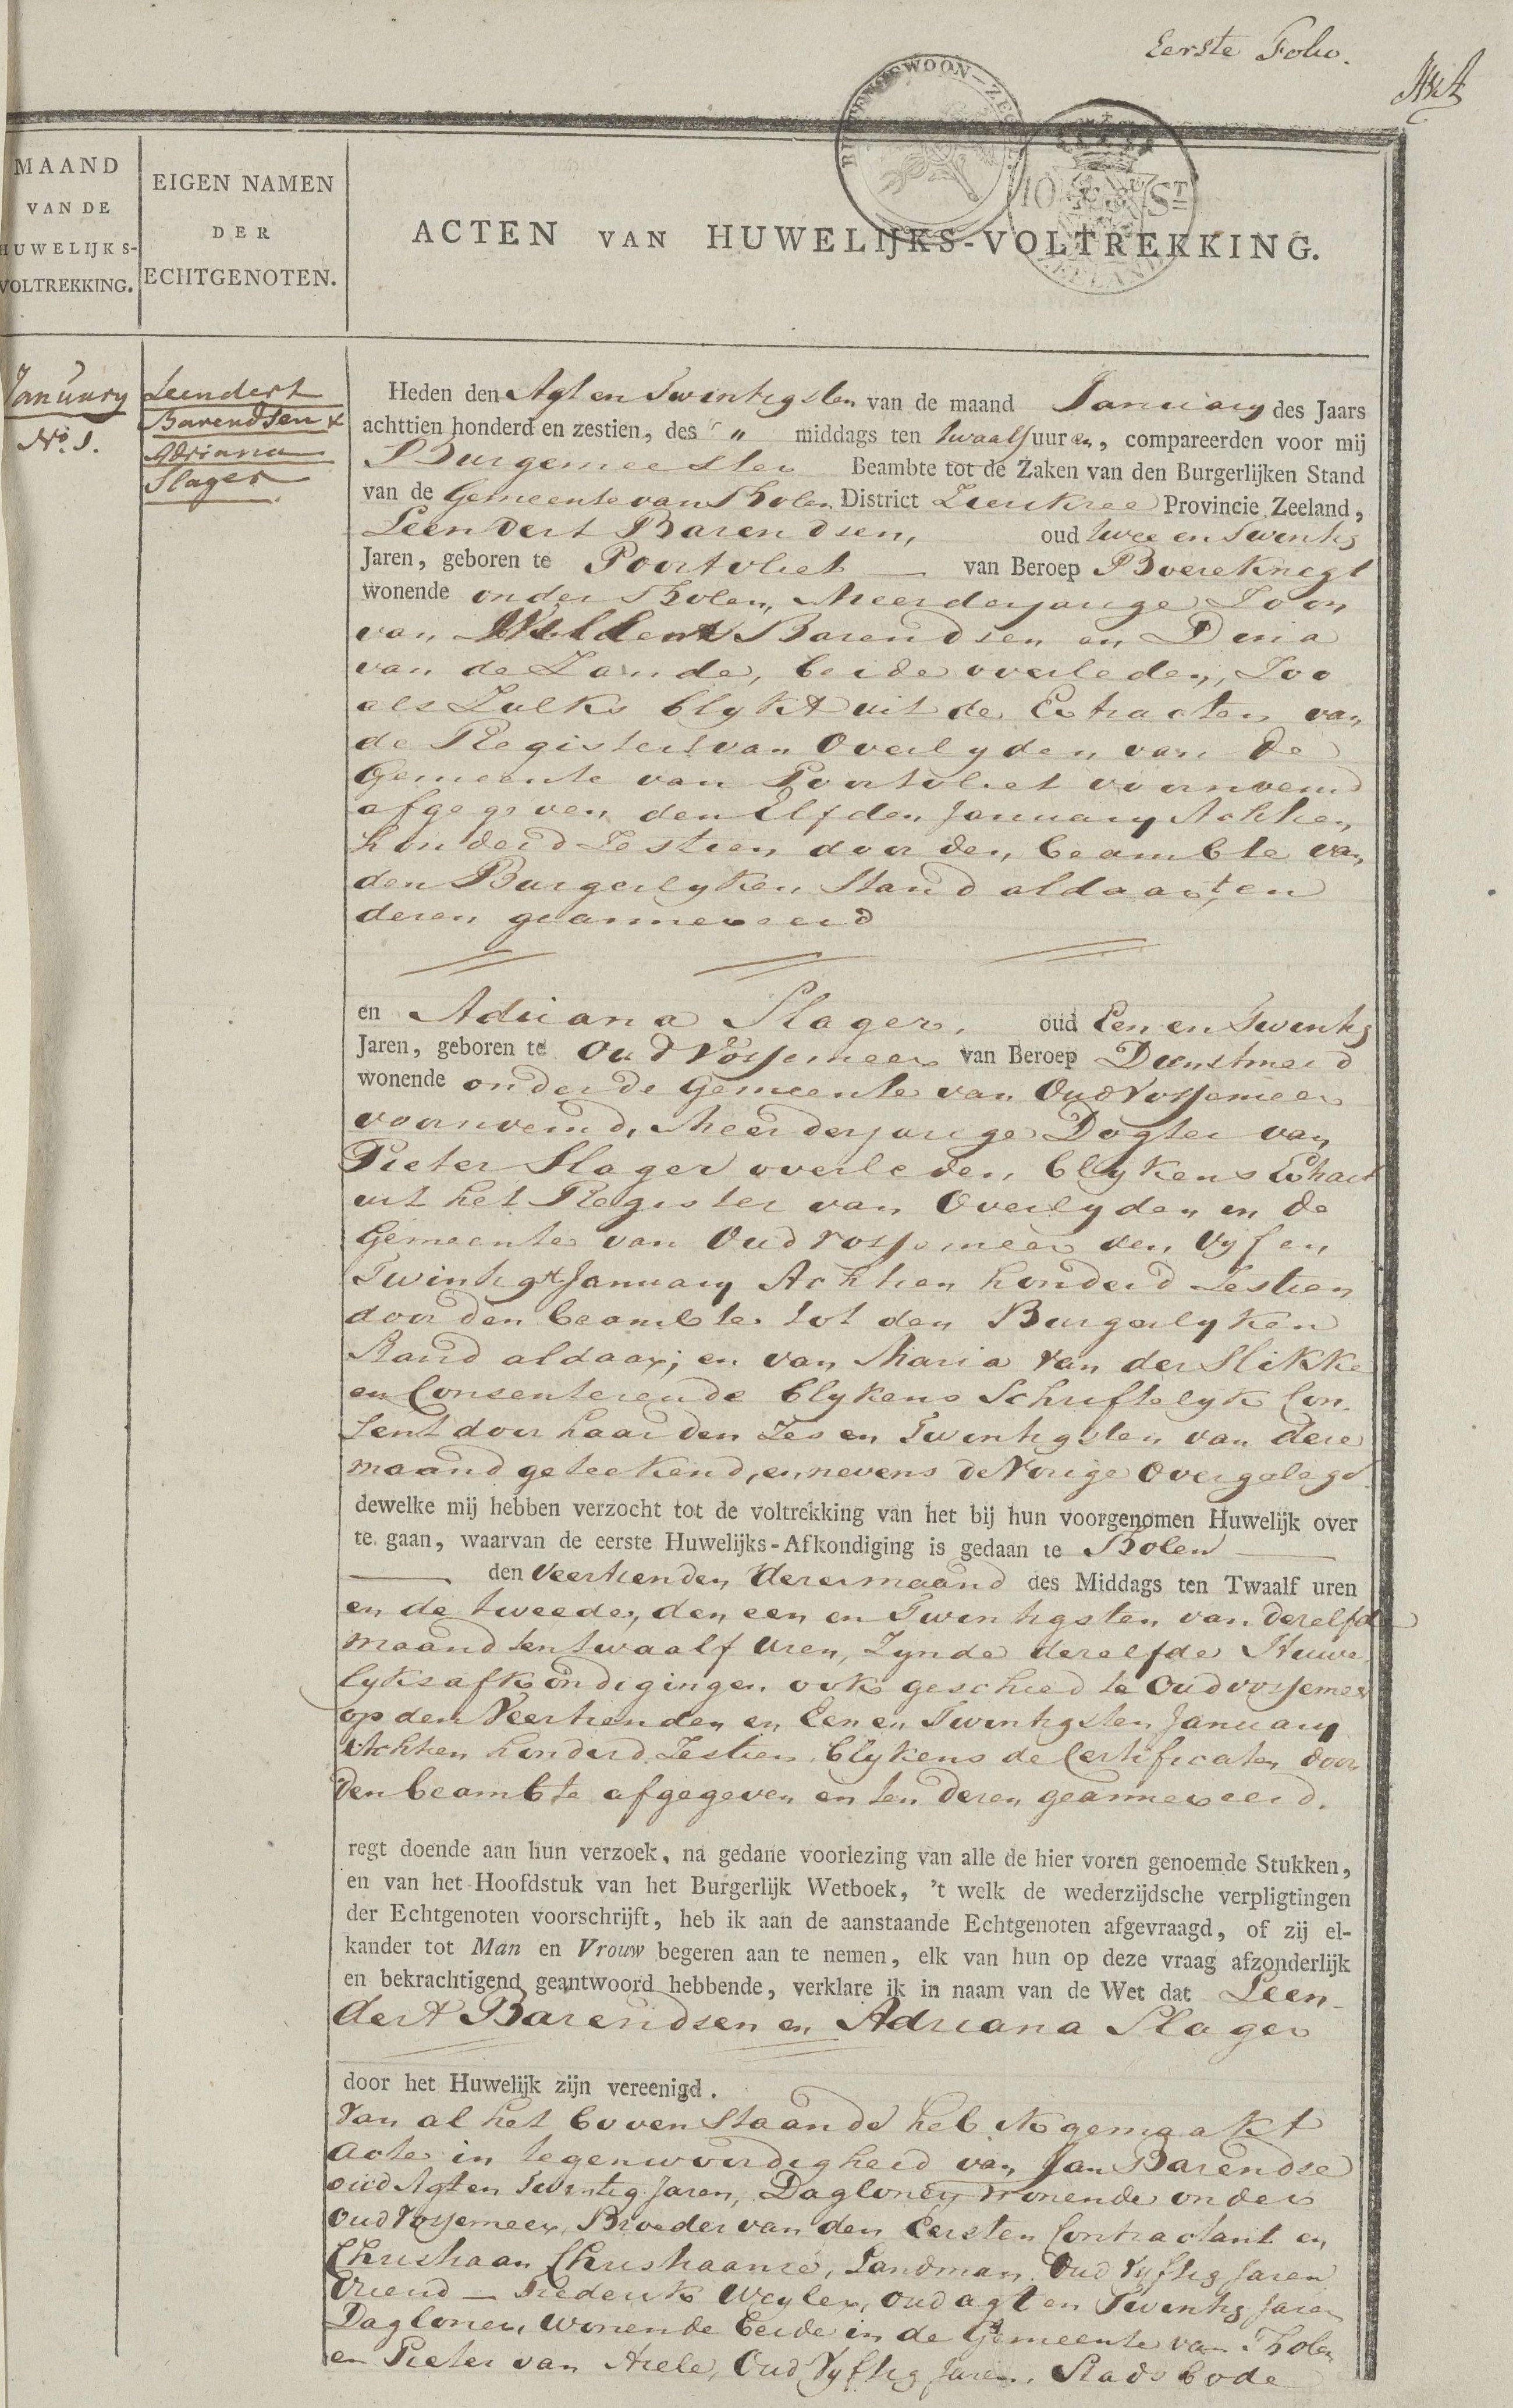 Eerste Folio.
BUITENGEWOON-ZEGEL
10 ST
ZEELAND
MAAND
VAN DE
HUWELIJKS-
VOLTREKKING.
EIGEN NAMEN
DER
ECHTGENOTEN.
ACTEN VAN HUWELIJKS-VOLTREKKING.
January
No. 1.
Leendert
Barendsen &
Adriana
Slager
Heden den Agt en Twintigsten van de maand January des Jaars
achttien honderd en zestien, des " middags ten twaalf uuren, compareerden voor mij
Burgemeester Beambte tot de Zaken van den Burgerlijken Stand
van de Gemeente van Tholen District Zierikzee Provincie Zeeland,
Leendert Barendsen, oud twee en Twintig
Jaren, geboren te Poortvliet van Beroep Boereknegt
wonende onder Tholen, Meerderjarige Zoon
van Barendsen en Dina
van de Zande, beide overleden, Zoo
als Zulks blykt uit de Extracten van
de Registers van Overlyden van de
Gemeente van Poortvliet voornoemd
afgegeven den Elfden January Achtien
honderd Zestien door den beambte van
den Burgerlyken Stand aldaar, ten
deren geannexeerd
en Adriana Slager, oud Een en Twintig
Jaren, geboren te Oud Vossemeer van Beroep Dienstmeid
wonende onder de Gemeente van Oud Vossemeer
voornoemd, Meerderjarige Dogter van
Pieter Slager overleden, blykens Extract
uit het Register van Overlyden in de
Gemeente van Oud Vossemeer den Vyf en
Twintigst January Achtien honderd Zestien
door den beambte tot den Burgerlyken
Stand aldaar; en van Maria van der Slikke
en Consenterende blykens Schriftelyk Con-
sent door haar den Zes en Twintigsten van dese
maand geteekend, en nevens de Vorige Overgelegd
dewelke mij hebben verzocht tot de voltrekking van het bij hun voorgenomen Huwelijk over
te gaan, waarvan de eerste Huwelijks-Afkondiging is gedaan te Tholen
den Veertienden deser maand des Middags ten Twaalf uren
en de tweede, den een en Twintigsten van deselfde
maand ten twaalf Uren, Zynde deselfde Huwe
lyksafkondigingen ook geschied te Oudvossemeer
op den Veertienden en Een en Twintigsten January
Achtien honderd Zestien blykens de Certificaten door
den beambte afgegeven en ten deren geannexeerd.
regt doende aan hun verzoek, na gedane voorlezing van alle de hier voren genoemde Stukken,
en van het Hoofdstuk van het Burgerlijk Wetboek, 't welk de wederzijdsche verpligtingen
der Echtgenoten voorschrijft, heb ik aan de aanstaande Echtgenoten afgevraagd, of zij el-
kander tot Man en Vrouw begeren aan te nemen, elk van hun op deze vraag afzonderlijk
en bekrachtigend geantwoord hebbende, verklare ik in naam van de Wet dat Leen-
dert Barendsen en Adriana Slager
door het Huwelijk zijn vereenigd.
Van al het bovenstaande heb ik gemaakt
acte in tegenwoordigheid van Jan Barendse
oud Agt en Twintig Jaren, Dagloner, wonende onder
Oud Vossemeer, Broeder van den Eersten Contractant en
Christiaan Christiaanse, Landman, Oud Vyftig Jaren
Vriend - Frederik Weyler, oud agt en Twintig Jaren
Dagloner, wonende beide in de Gemeente van Tholen
en Pieter van Aeele, Oud Vyftig Jaren, Stads bode